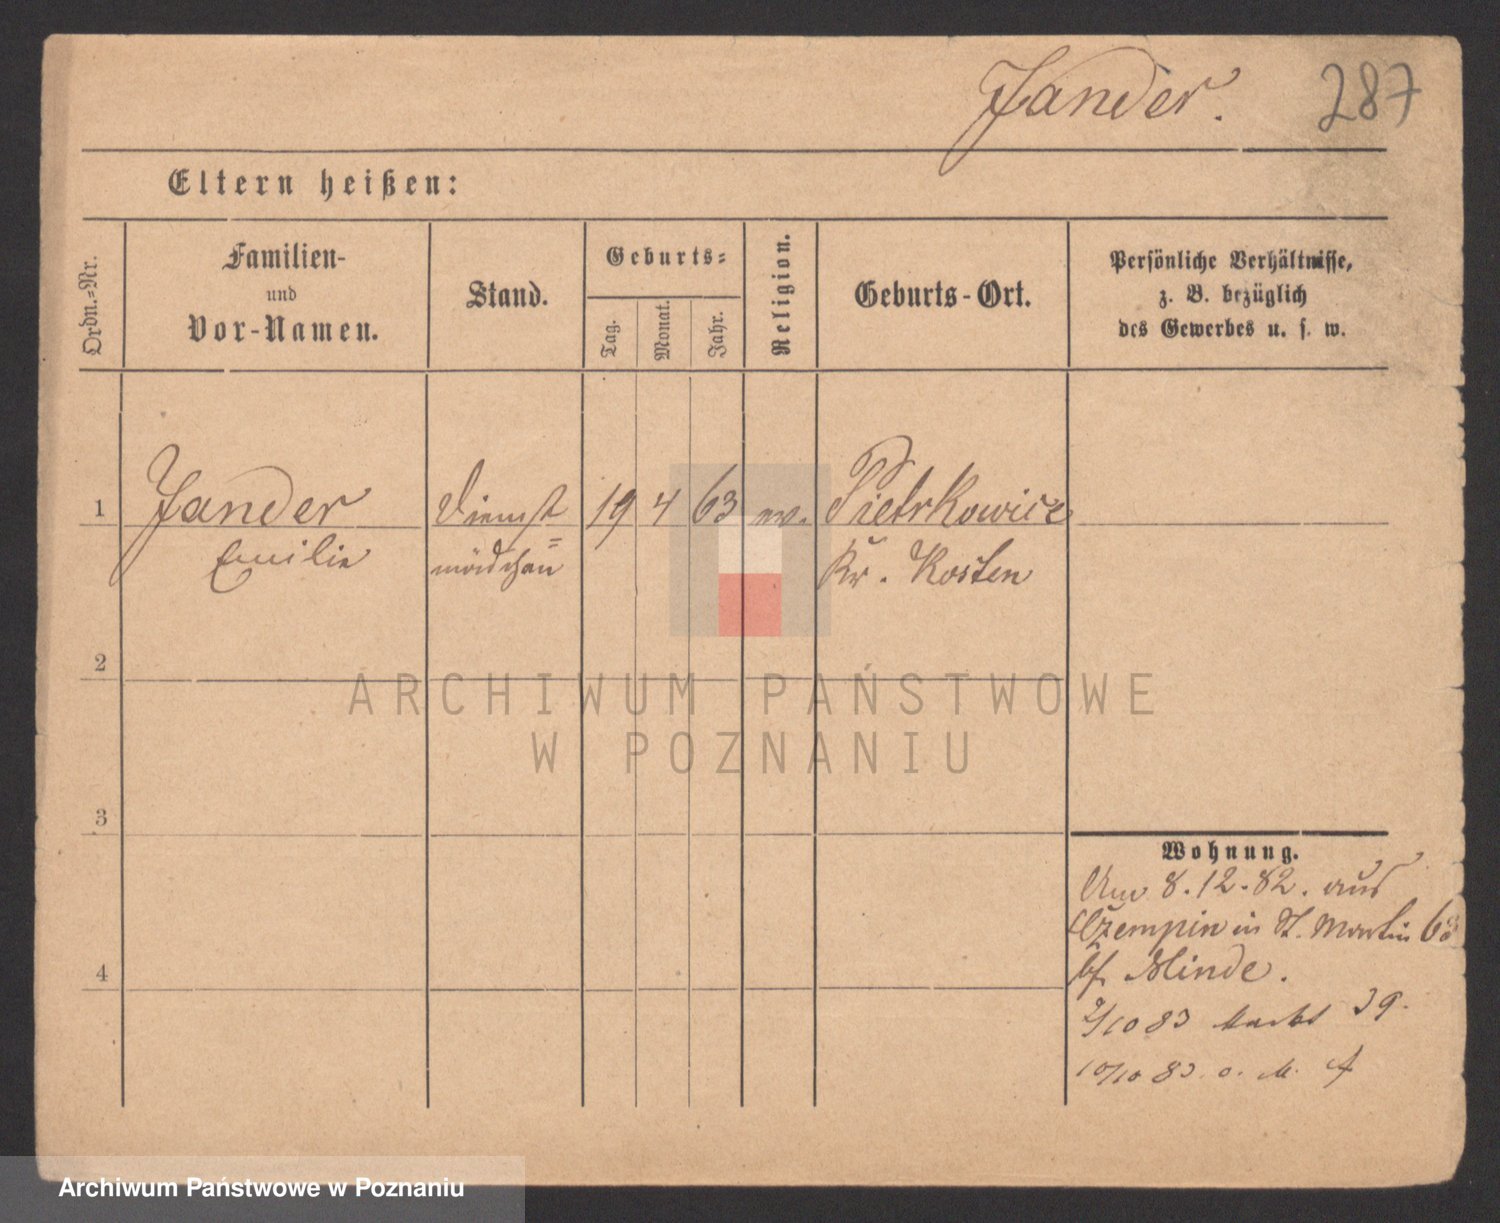 Jander. 287
Eltern heißen:
Ordn.=Nr.
Familien-
und
Vor-Namen.
Stand.
Geburts=
Tag.
Monat.
Jahr.
Religion.
Geburts-Ort.
Persönliche Verhältnisse,
z. B. bezüglich
des Gewerbes u. s. w.
1 Jander Dienst 19 4 63 ev. Pietrkowice
Emilie mädchen Kr. Kosten
2
3
4
Wohnung.
8.12.82. aus
Czempin in St. Martin 63
bf Minde.
2/10 83 Markt 39.
10/10 83. o. M.
ARCHIWUM PAŃSTWOWE
W POZNANIU
Archiwum Państwowe w Poznaniu